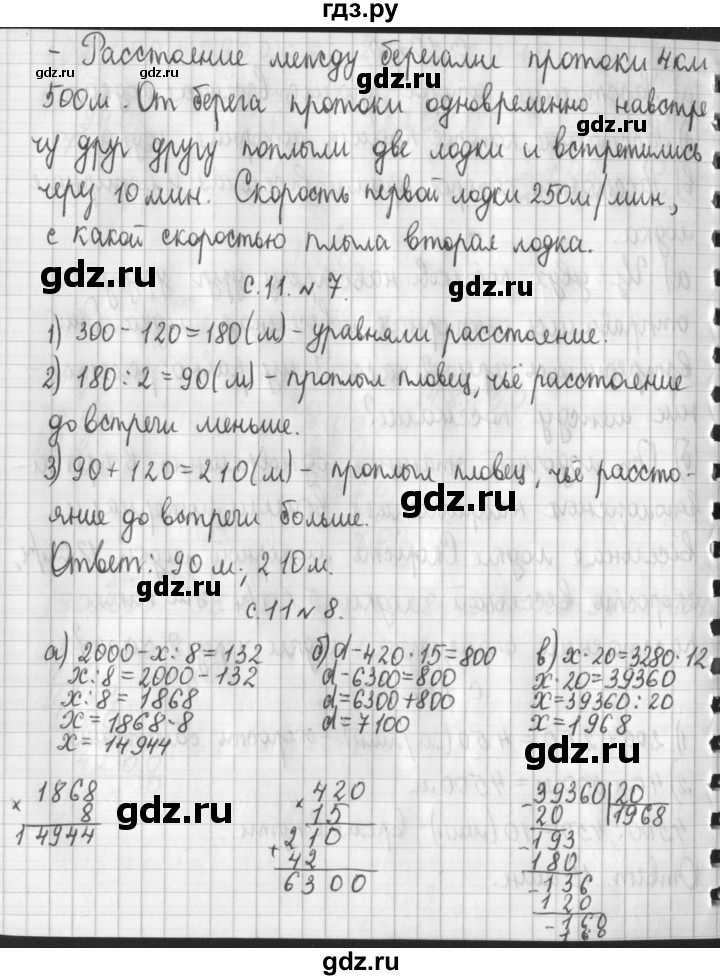 гдз.ру
- Расстояние между берегами протоки 4км
gdz.ru gdz.ru
500м. От берега протоки одновременно навстре
gdz.ru
чу друг другу поплыли две лодки и встретились
через 10 мин. Скорость первой лодки 250м/мин,
с какой скоростью плыла вторая лодка.
gdz.ru
с. 11. № 7.
gdz.ru
1) 300 - 120 = 180 (м) - уравняли расстояние.
2) 180 : 2 = 90 (м) - проплыл пловец, чьё расстояние
до встречи меньше.
3) 90 + 120 = 210 (м) - проплыл пловец, чьё рассто-
gdz.ru
яние до встречи больше.
Ответ: 90 м; 210м.
gdz.ru
с. 11 № 8.
gdz.ru
а) 2000 - x : 8 = 132
x : 8 = 2000 - 132
x : 8 = 1868
x = 1868 · 8
x = 14944
б) d - 420 · 15 = 800
d - 6300 = 800
d = 6300 + 800
d = 7100
в) x · 20 = 3280 · 12
x · 20 = 39360
x = 39360 : 20
x = 1968
gdz.ru
gdz.ru
× 1868
8
14944
× 420
15
210
+ 42
6300
- 39360 | 20
20 | 1968
- 193
180
- 136
120
- 168
168
gdz.ru